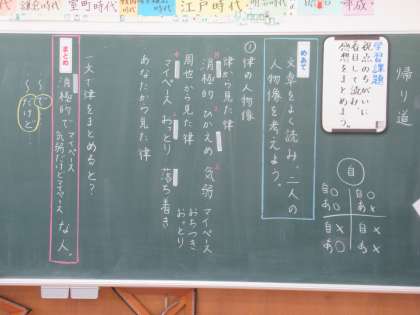 鎌倉時代
室町時代
江戸時代
平成
帰り道
学習課題
視点のちがいに
着目して読み、
感想をまとめよう。
自
自○
あ○
自○
あ×
自×
あ○
自×
あ×
めあて
文章をよく読み、二人の
人物像を考えよう。
①律の人物像
律から見た律
消極的 ひかえめ 気弱 マイペース
おちつき
おっとり
周也から見た律
マイペース おっとり 落ち着き
あなたから見た律
一文で律をまとめると?
まとめ
消極的で気弱だけどマイペースな人。
マイペース
〜で
〜だけど…